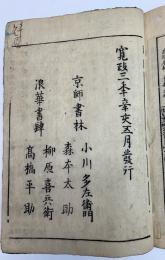 寛政三年辛亥五月発行
京師書林
小川多左衛門
森本太助
浪華書肆
柳原喜兵衛
高橋平助